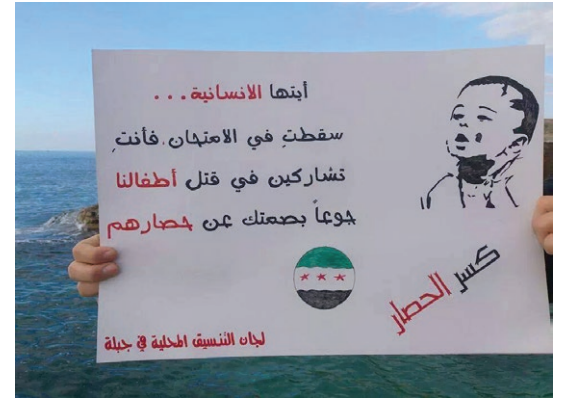 أيتها الانسانية...
سقطتِ في الامتحان، فأنتِ
تشاركين في قتل أطفالنا
جوعاً بصمتك عن حصارهم
كسر الحصار
لجان التنسيق المحلية في جبلة